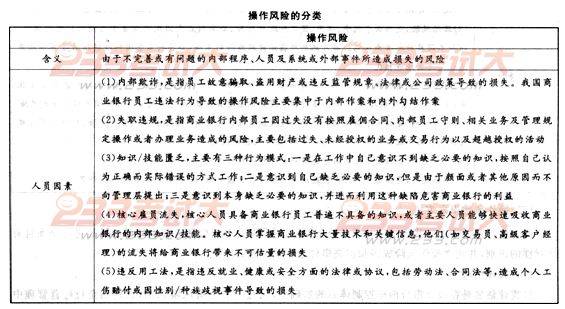 操作风险的分类
操作风险
含义
由于不完善或有问题的内部程序、人员及系统或外部事件所造成损失的风险
人员因素
(1)内部欺诈,是指员工故意骗取、盗用财产或违反监管规章、法律或公司政策导致的损失。我国商
业银行员工违法行为导致的操作风险主要集中于内部作案和内外勾结作案
(2)失职违规,是指商业银行内部员工因过失没有按照雇佣合同、内部员工守则、相关业务及管理规
定操作或者办理业务造成的风险,主要包括过失、未经授权的业务或交易行为以及超越授权的活动
(3)知识/技能匮乏,主要有三种行为模式:一是在工作中自己意识不到缺乏必要的知识,按照自己认
为正确而实际错误的方式工作;二是意识到自己缺乏必要的知识,但是由于颜面或者其他原因而不
向管理层提出;三是意识到本身缺乏必要的知识,并进而利用这种缺陷危害商业银行的利益
(4)核心雇员流失,核心人员具备商业银行员工普遍不具备的知识,或者主要人员能够快速吸收商业
银行的内部知识/技能。核心人员掌握商业银行大量技术和关键信息,他们(如交易员、高级客户经
理)的流失将给商业银行带来不可估量的损失
(5)违反用工法,是指违反就业、健康或安全方面的法律或协议,包括劳动法、合同法等,造成个人工
伤赔付或因性别/种族歧视事件导致的损失
233考试大
www.233.com